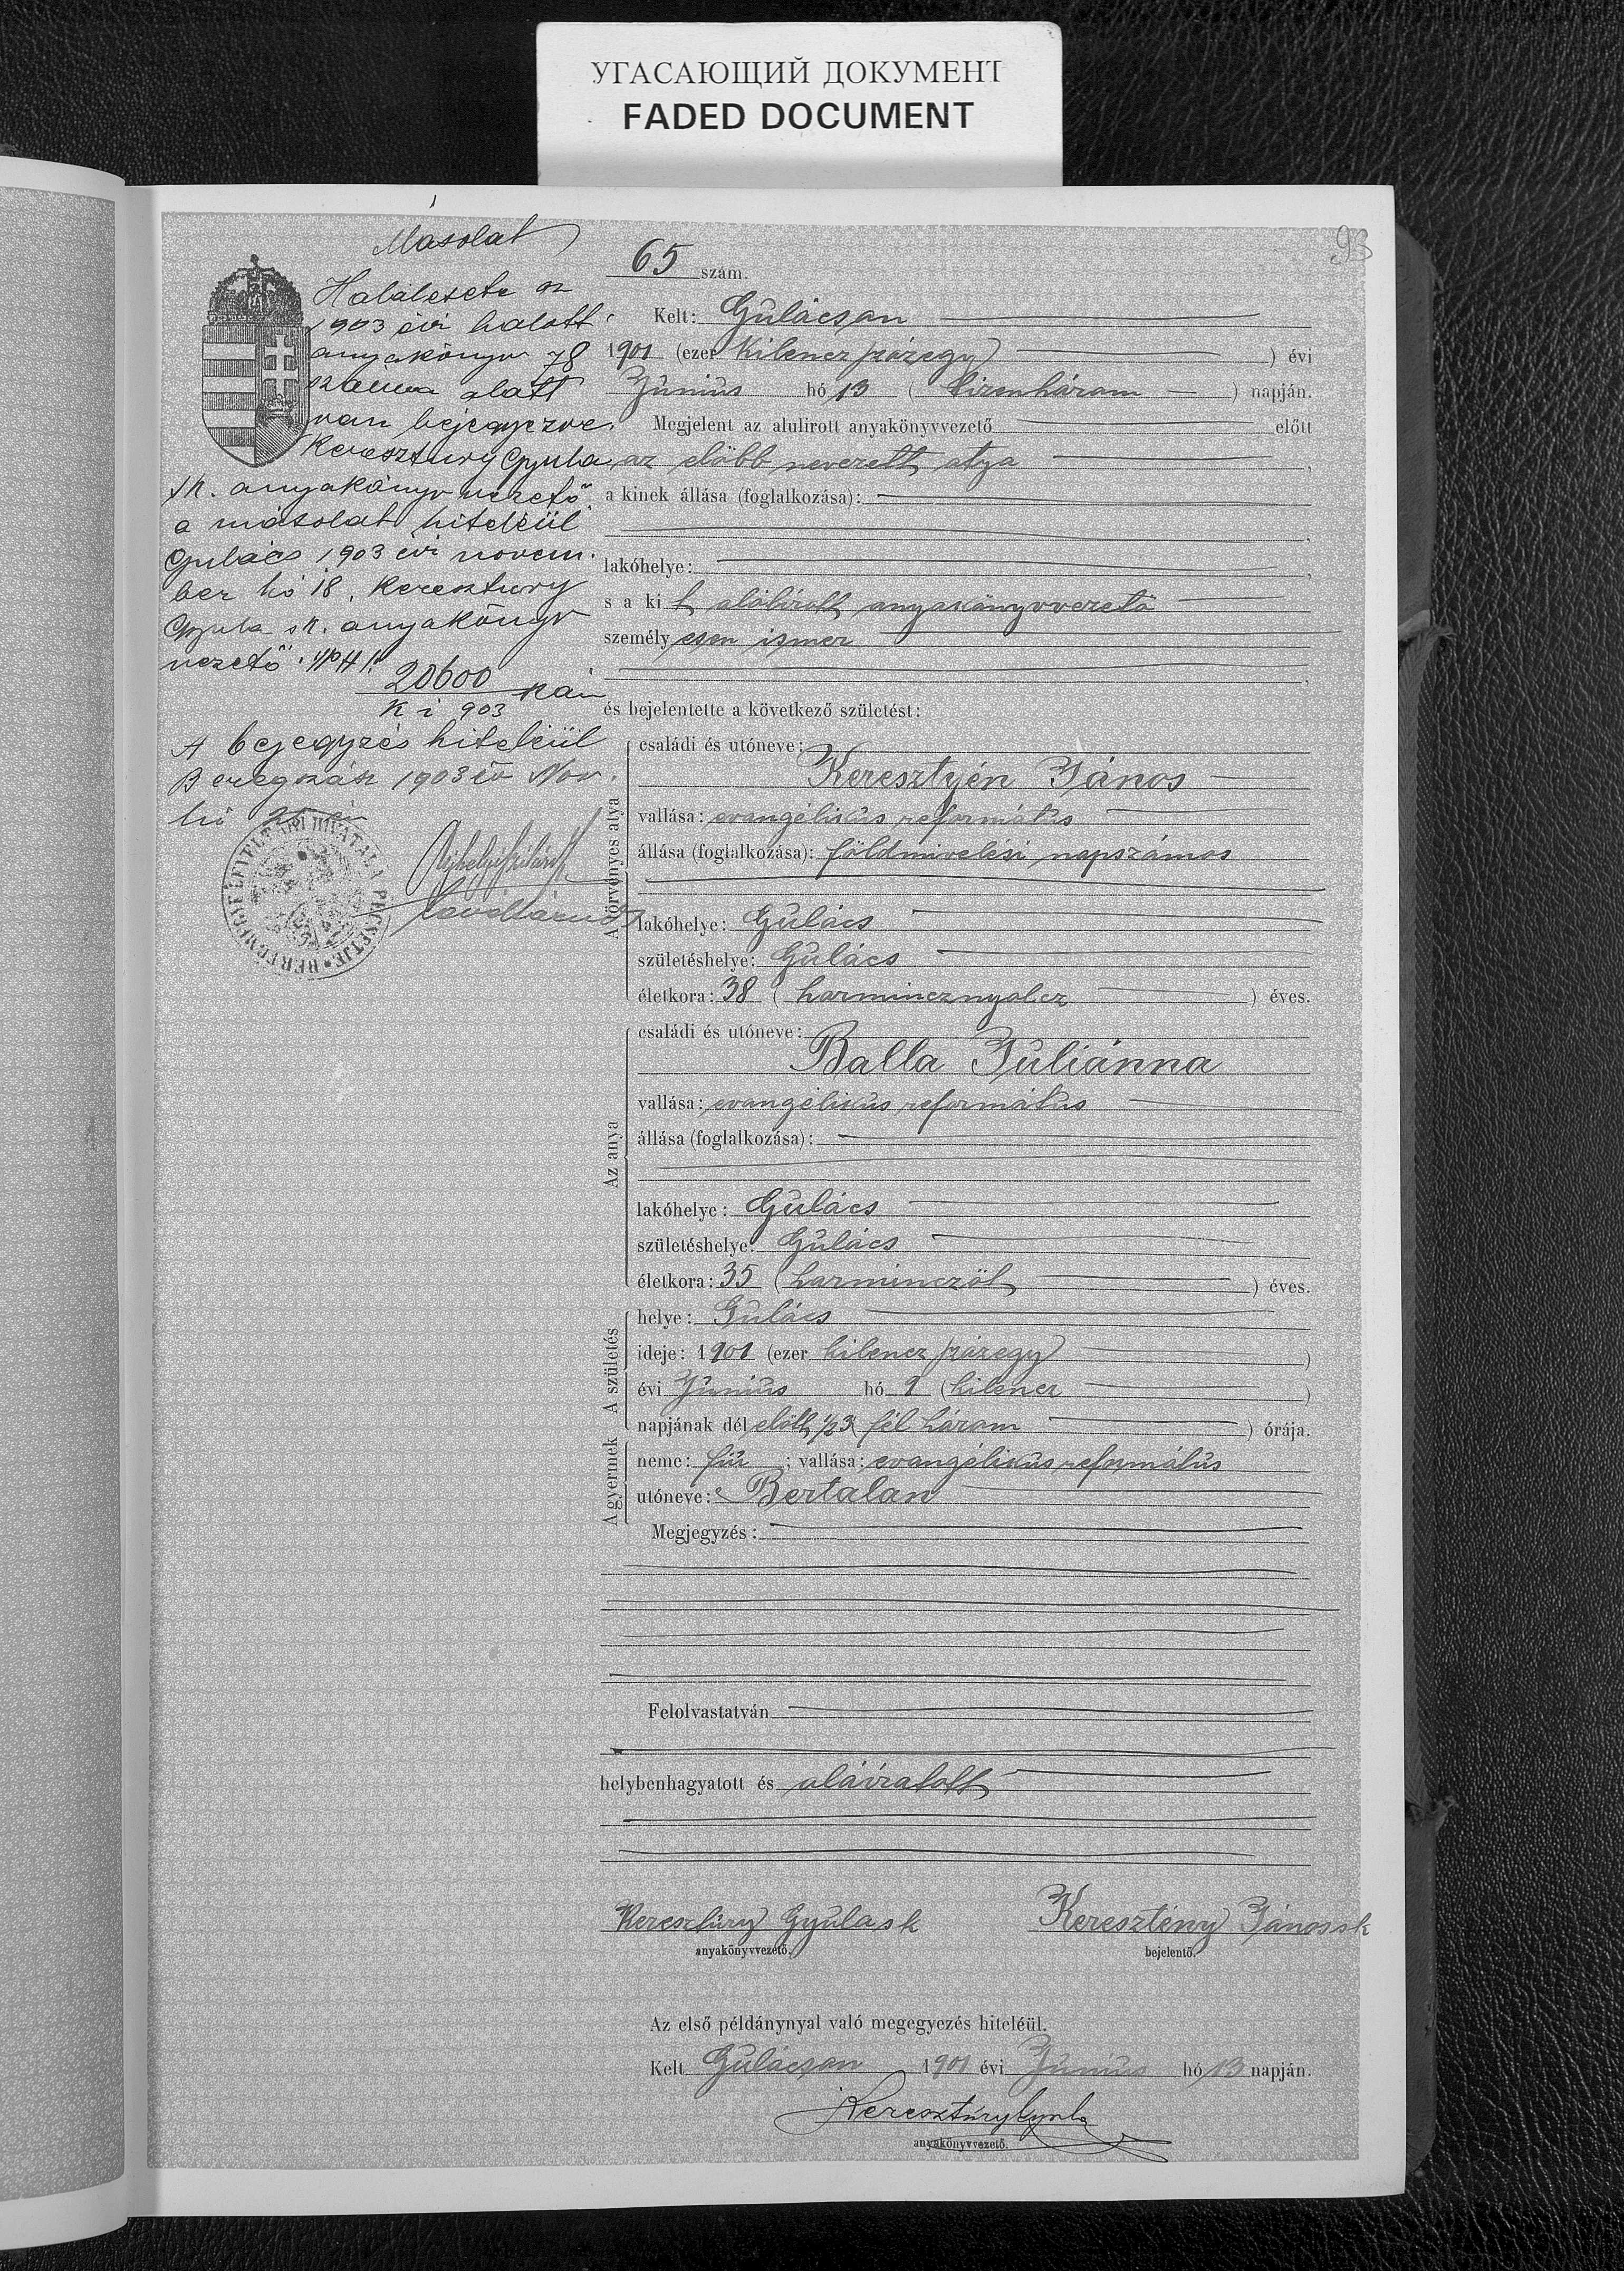 УГАСАЮЩИЙ ДОКУМЕНТ
FADED DOCUMENT
93
Másolat
Halálesete az
1903 évi halott
anyakönyv 78
száma alatt
van bejegyezve.
Keresztury Gyula
sk. anyakönyvvezető
a másolat hiteléül
Gulács 1903 évi novem-
ber hó 18. Keresztury
Gyula sk. anyakönyv
vezető.
20600
K i 903
A bejegyzés hiteléül
Beregszász 1903 év Nov.
hó
BEREGMEGYE LEVÉLTÁRI HIVATALA PECSÉTJE
65 szám.
Kelt: Gulácson
1901 (ezer kilencz száz egy) évi
Június hó 13 (tizenhárom) napján.
Megjelent az alulirott anyakönyvvezető előtt
az előbb nevezett atya,
a kinek állása (foglalkozása):
lakóhelye:
s a kit alólírott anyakönyvvezető
személyesen ismer
és bejelentette a következő születést:
A törvényes atya
családi és utóneve:
Keresztyén János
vallása: evangélikus református
állása (foglalkozása): földmivelési napszámos
lakóhelye: Gulács
születéshelye: Gulács
életkora: 38 (harmincznyolcz) éves.
Az anya
családi és utóneve:
Balla Juliánna
vallása: evangélikus református
állása (foglalkozása):
lakóhelye: Gulács
születéshelye: Gulács
életkora: 35 (harminczöt) éves.
A születés
helye: Gulács
ideje: 1901 (ezer kilencz száz egy)
évi Június hó 9 (kilencz)
napjának délelőtt ½3 (fél három) órája.
A gyermek
neme: fiú; vallása: evangélikus református
utóneve: Bertalan
Megjegyzés:
Felolvastatván
helybenhagyatott és aláíratott
Keresztúry Gyula sk
anyakönyvvezető.
Keresztény János sk
bejelentő.
Az első példánynyal való megegyezés hiteléül.
Kelt Gulácson 1901 évi Június hó 13 napján.
Keresztúry Gyula
anyakönyvvezető.